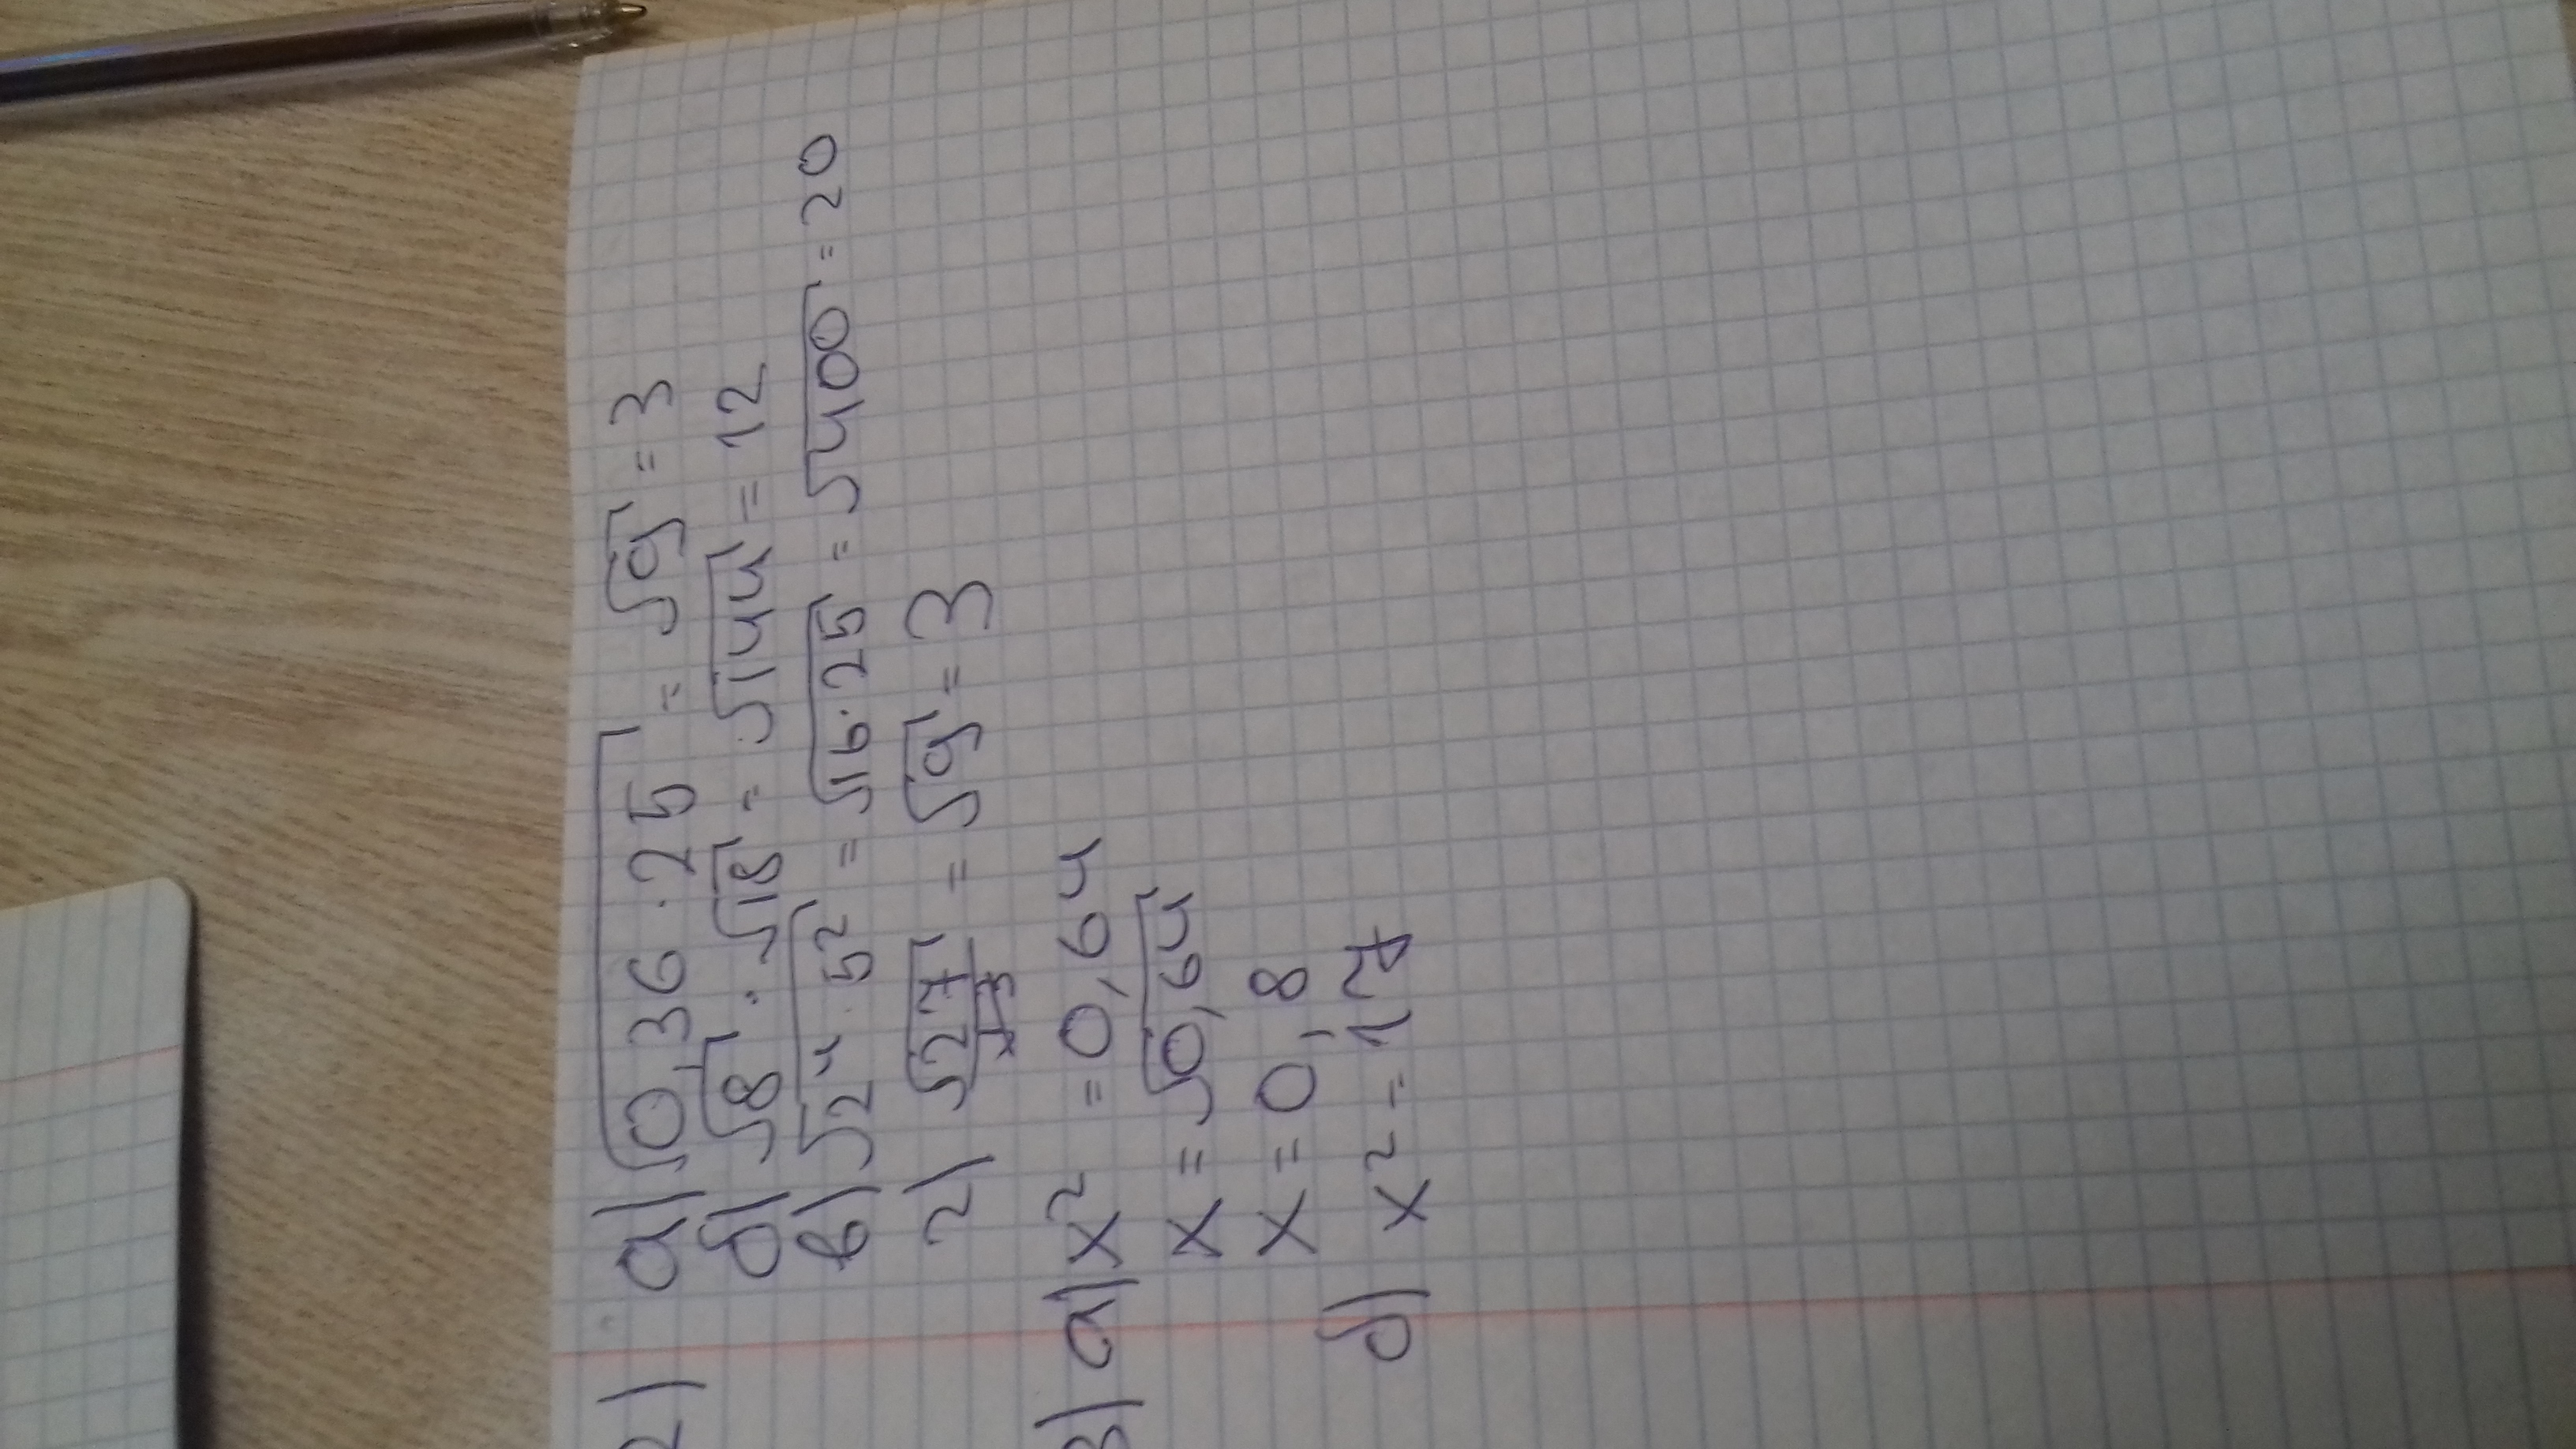 2) а) √0,36 · 25 = √9 = 3
б) √8 · √18 = √144 = 12
в) √2⁴ · 5² = √16·25 = √400 = 20
г) √27/√3 = √9 = 3
3) а) x² = 0,64
x = √0,64
x = 0,8
б) x² = 17